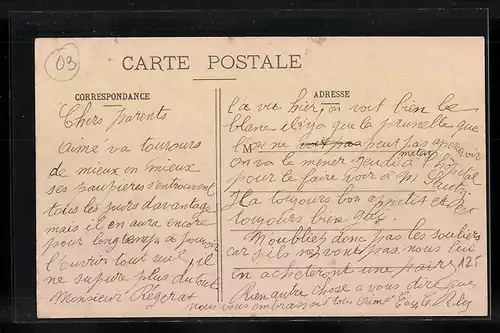 03
CARTE POSTALE
CORRESPONDANCE
ADRESSE
Chers parents
Aimé va toujours
de mieux en mieux
ses paupières s'entrouvrent
tous les jours davantage
mais il en aura encore
pour longtemps à pouvoir
l'ouvrir tout seul, il
ne supure plus du tout
Monsieur Régerat
l'a vu hier, on voit bien le
blanc il n'y a que la prunelle que
M
l'on ne voit pas peut pas apercevoir
on va le mener jeudi matin hôpital
pour le faire voir à Mr
Il a toujours bon appetit et est
toujours bien
N'oubliez donc pas les souliers
car s'ils ne vont pas, nous lui
en achèterons une paire 125
Rien autre chose a vous dire que
nous vous embrassons tous Aimé